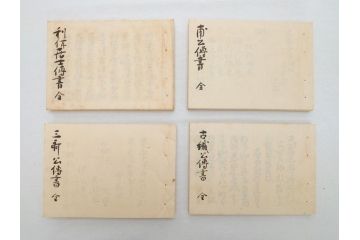 利休居士傳書 全
甫公傳書 全
三齋公傳書 全
古織公傳書 全